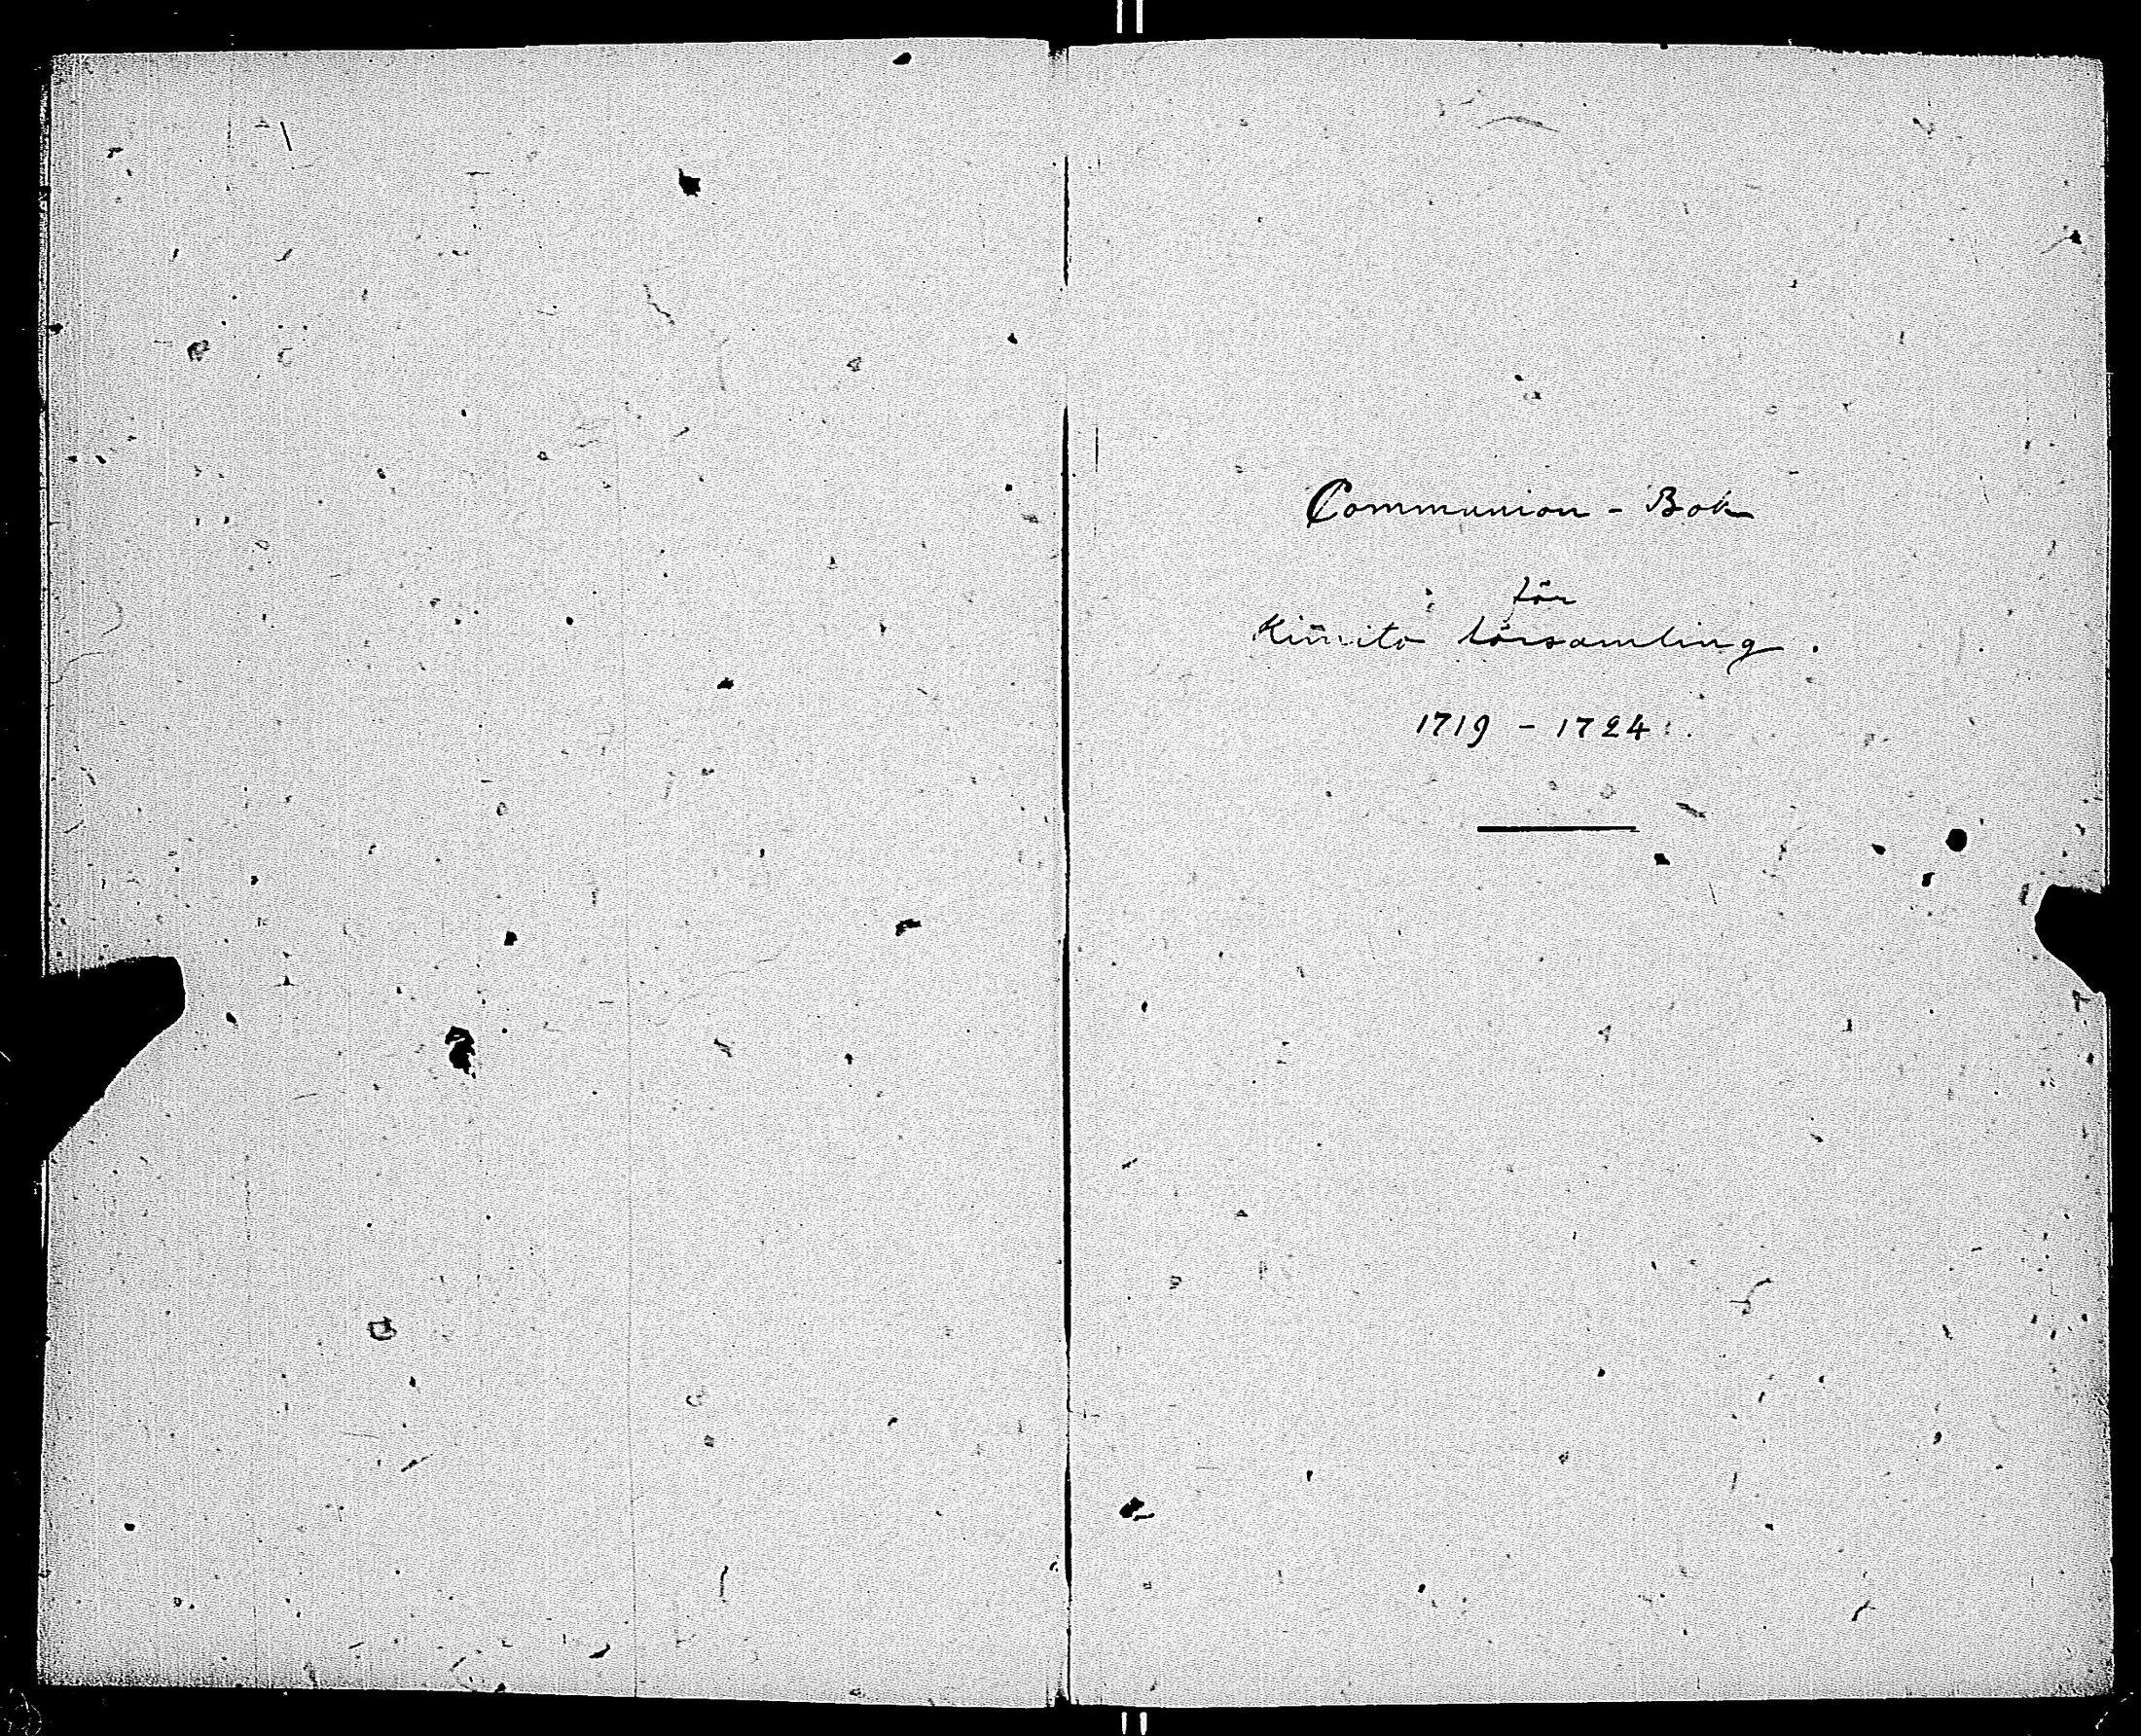 Communion - Bok
för
Kim̄ito församling.
1719 - 1724.